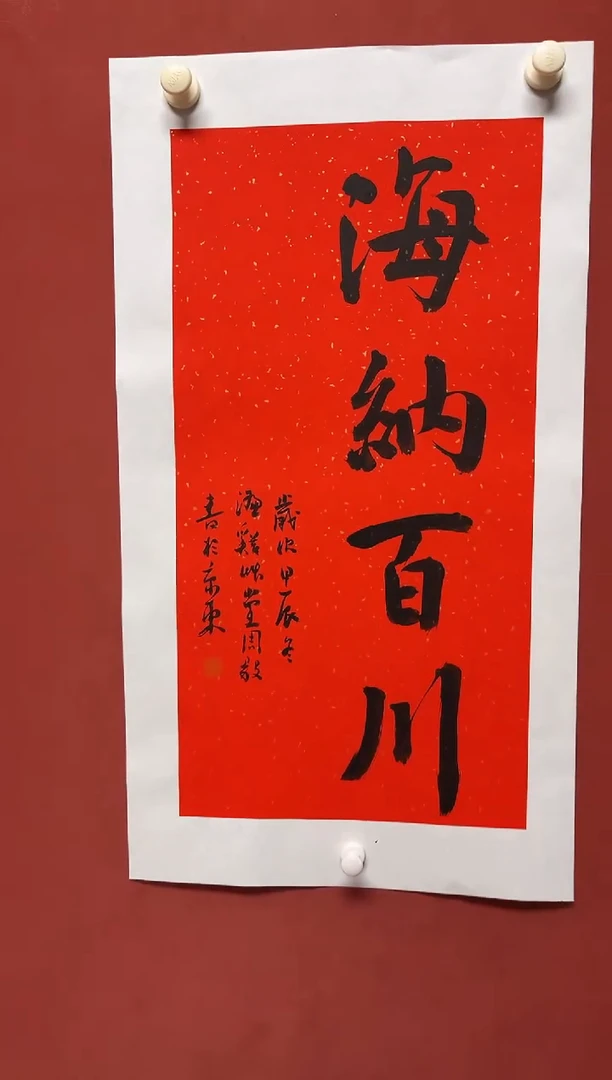 海納百川
歲次甲辰冬
堂周敬
書於京東